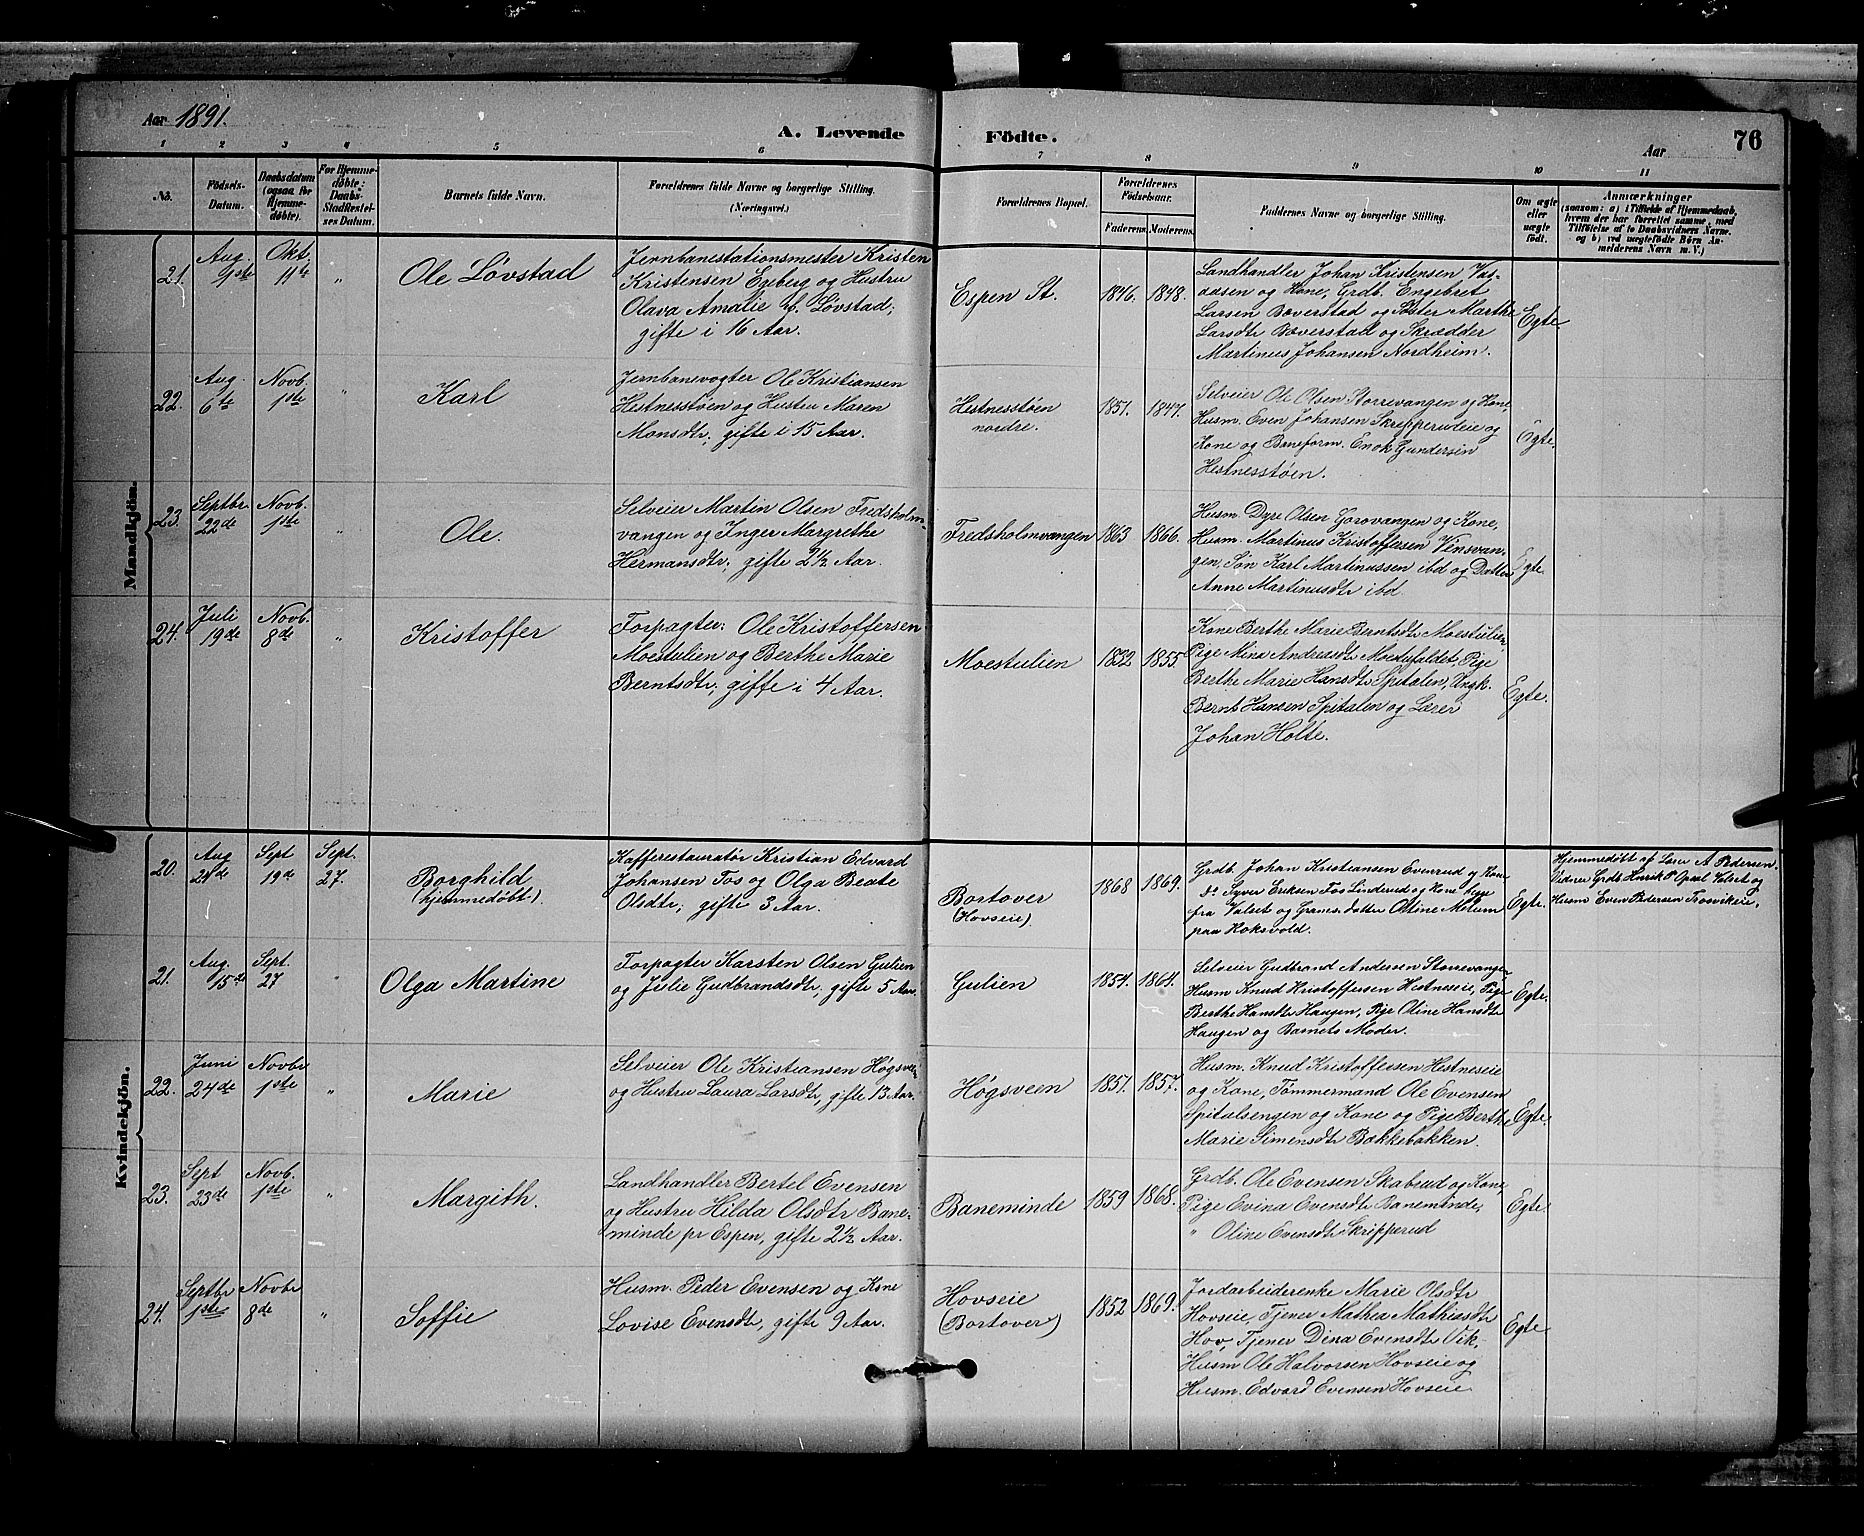 Aar 1891.
A. Levende Födte.
Aar
76
1 2 3 4 5 6 7 8 9 10 11
No.
Födsels-
Datum.
Daabsdatum
(ogsaa for
Hjemme-
döbte).
For Hjemme-
döbte:
Daabs-
Stadfæstel-
ses Datum.
Barnets fulde Navn.
Forældrenes fulde Navne og borgerlige Stilling.
(Næringsvei.)
Forældrenes Bopæl.
Forældrenes
Födselsaar.
Faderens. Moderens.
Faddernes Navne og borgerlige Stilling.
Om ægte
eller
uægte
födt.
Anmærkninger
(saasom: a) i Tilfælde af Hjemmedaab,
hvem der har forrettet samme, med
Tilföielse af to Daabsvidners Navne.
og b) ved uægtefödte Börn An-
melderens Navn m. V.)
Mandkjön.
21.
Aug.
9de
Okt.
11te
"
Ole Løvstad
Jernbanestationsmester Kristen
Kristensen Egeberg og Hustru
Olava Amalie f. Løvstad;
gifte i 16 Aar.
Espen St.
1846. 1848.
Landhandler Johan Kristensen Vas-
aasen og Kone, Grdb. Engebret
Larsen Bæverstad og Søster Marthe
Larsdtr Bæverstad og Skrædder
Martinus Johansen Nordheim.
Egte
22.
Aug.
6te
Novb.
1ste
"
Karl
Jernbanevogter Ole Kristiansen
Hestnesstøen og Hustru Maren
Monsdtr; gifte i 15 Aar.
Hestnesstøen
nordre.
1851. 1847.
Selveier Ole Olsen Storrevangen og Kone,
Husm. Even Johansen Skripperudeie og
Kone og Baneform. Enok Gundersen
Hestnesstøen.
Egte.
23.
Septbr
22de
Novb.
1ste
"
Ole.
Selveier Martin Olsen Fredsholm-
vangen og Inger Margrethe
Hermansdtr; gifte 2½ Aar.
Fredsholmvangen
1863 1866.
Husm. Dyre Olsen Gorovangen og Kone,
Husm. Martinus Kristoffersen Vensvan-
gen, Søn Karl Martinussen ibd og Datter
Anne Martinusdtr ibd.
Egte.
24.
Juli
19de
Novb.
8de
"
Kristoffer
Forpagter: Ole Kristoffersen
Moestulien og Berthe Marie
Berntsdtr; gifte i 4 Aar.
Moestulien
1832 1855
Kone Berthe Marie Berntsdtr Moestulien
Pige Mina Andreasdtr Moestufaldet, Pige
Berthe Marie Hansdtr Spitalen, Ungk.
Bernt Hansen Spitalen og Lærer
Johan Holte.
Egte.
Kvindekjön.
20.
Aug
21de
Sept
19de
Sept.
27.
Borghild
(hjemmedøbt)
Kafferestauratør Kristian Edvard
Johansen Fos og Olga Beate
Olsdtr; gifte 3 Aar.
Bortover
(Hovseie)
1868 1869.
Grdb. Johan Kristiansen Evenrud og Kone
Do Syver Eriksen Fos Linderud og Kone begge
fra Valset og Gaardm. datter Oline Mælum
paa Koksvold.
Egte.
Hjemmedøbt af Lærer A Pedersen.
Vidner Grdb. Henrik P. Opsal Valset og
Husm Even Pedersen Frosvikeie.
21.
Aug.
15de
Sept.
27
"
Olga Martine
Forpagter Karsten Olsen Gulien
og Julie Gudbrandsdtr, gifte 5 Aar.
Gulien
1854. 1864.
Selveier Gudbrand Andersen Storrevangen
Husm Knud Kristoffersen Hestneseie, Pige
Berthe Hansdtr Haugen, Pige Oline Hansdtr
Haugen og Barnets Moder.
Egte.
22.
Juni
24de
Novbr
1ste
"
Marie
Selveier Ole Kristiansen Høgsveen
og Hustru Laura Larsdtr, gifte 13 Aar.
Høgsveen
1851. 1857.
Husm. Knud Kristoffersen Hestneseie
og Kone, Tømmermand Ole Evensen
Spitalsengen og Kone og Pige Berthe
Marie Simensdtr Bakkebakken.
Egte.
23.
Sept
23de
Novb.
1ste
"
Margith.
Landhandler Bertel Evensen
og Hustru Hilda Olsdtr Bane-
minde pr Espen, gifte 2½ Aar.
Baneminde
1859 1868.
Grdb. Ole Evensen Skaberud og Kone,
Pige Evina Evensdtr Baneminde,
" Oline Evensdtr Skripperud
Egte.
24.
Septbr
1ste
Novbr
8de
"
Soffie
Husm. Peder Evensen og Kone
Lovise Evensdtr, gifte 9 Aar.
Hovseie
(Bortover)
1852 1869.
Jordarbeiderenke Marie Olsdtr
Hovseie, Tjener Mathea Mathiasdtr
Hov, Tjener Dina Evensdtr Vik,
Husm Ole Halvorsen Hovseie og
Husm. Edvard Evensen Hovseie
Egte.